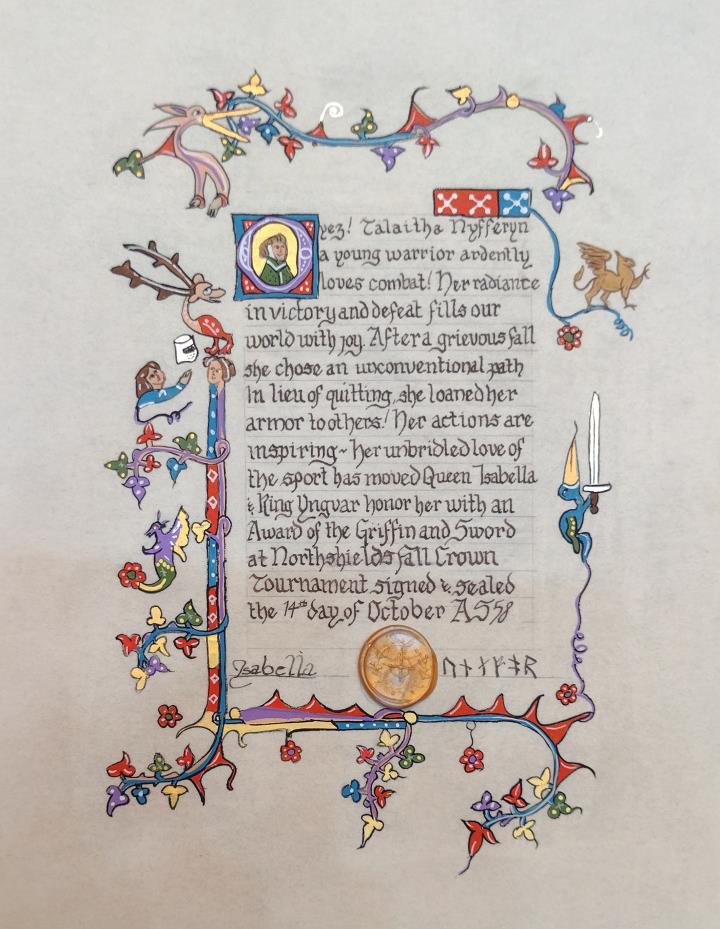 Oyez! Talaitha Nyfferyn
a young warrior ardently
loves combat! Her radiance
in victory and defeat fills our
world with joy. After a grievous fall
she chose an unconventional path
In lieu of quitting, she loaned her
armor to others! Her actions are
inspiring~ her unbridled love of
the sport has moved Queen Isabella
& King Yngvar honor her with an
Award of the Griffin and Sword
at Northshields fall Crown
Tournament signed & sealed
the 14th day of October AS 58
Isabella